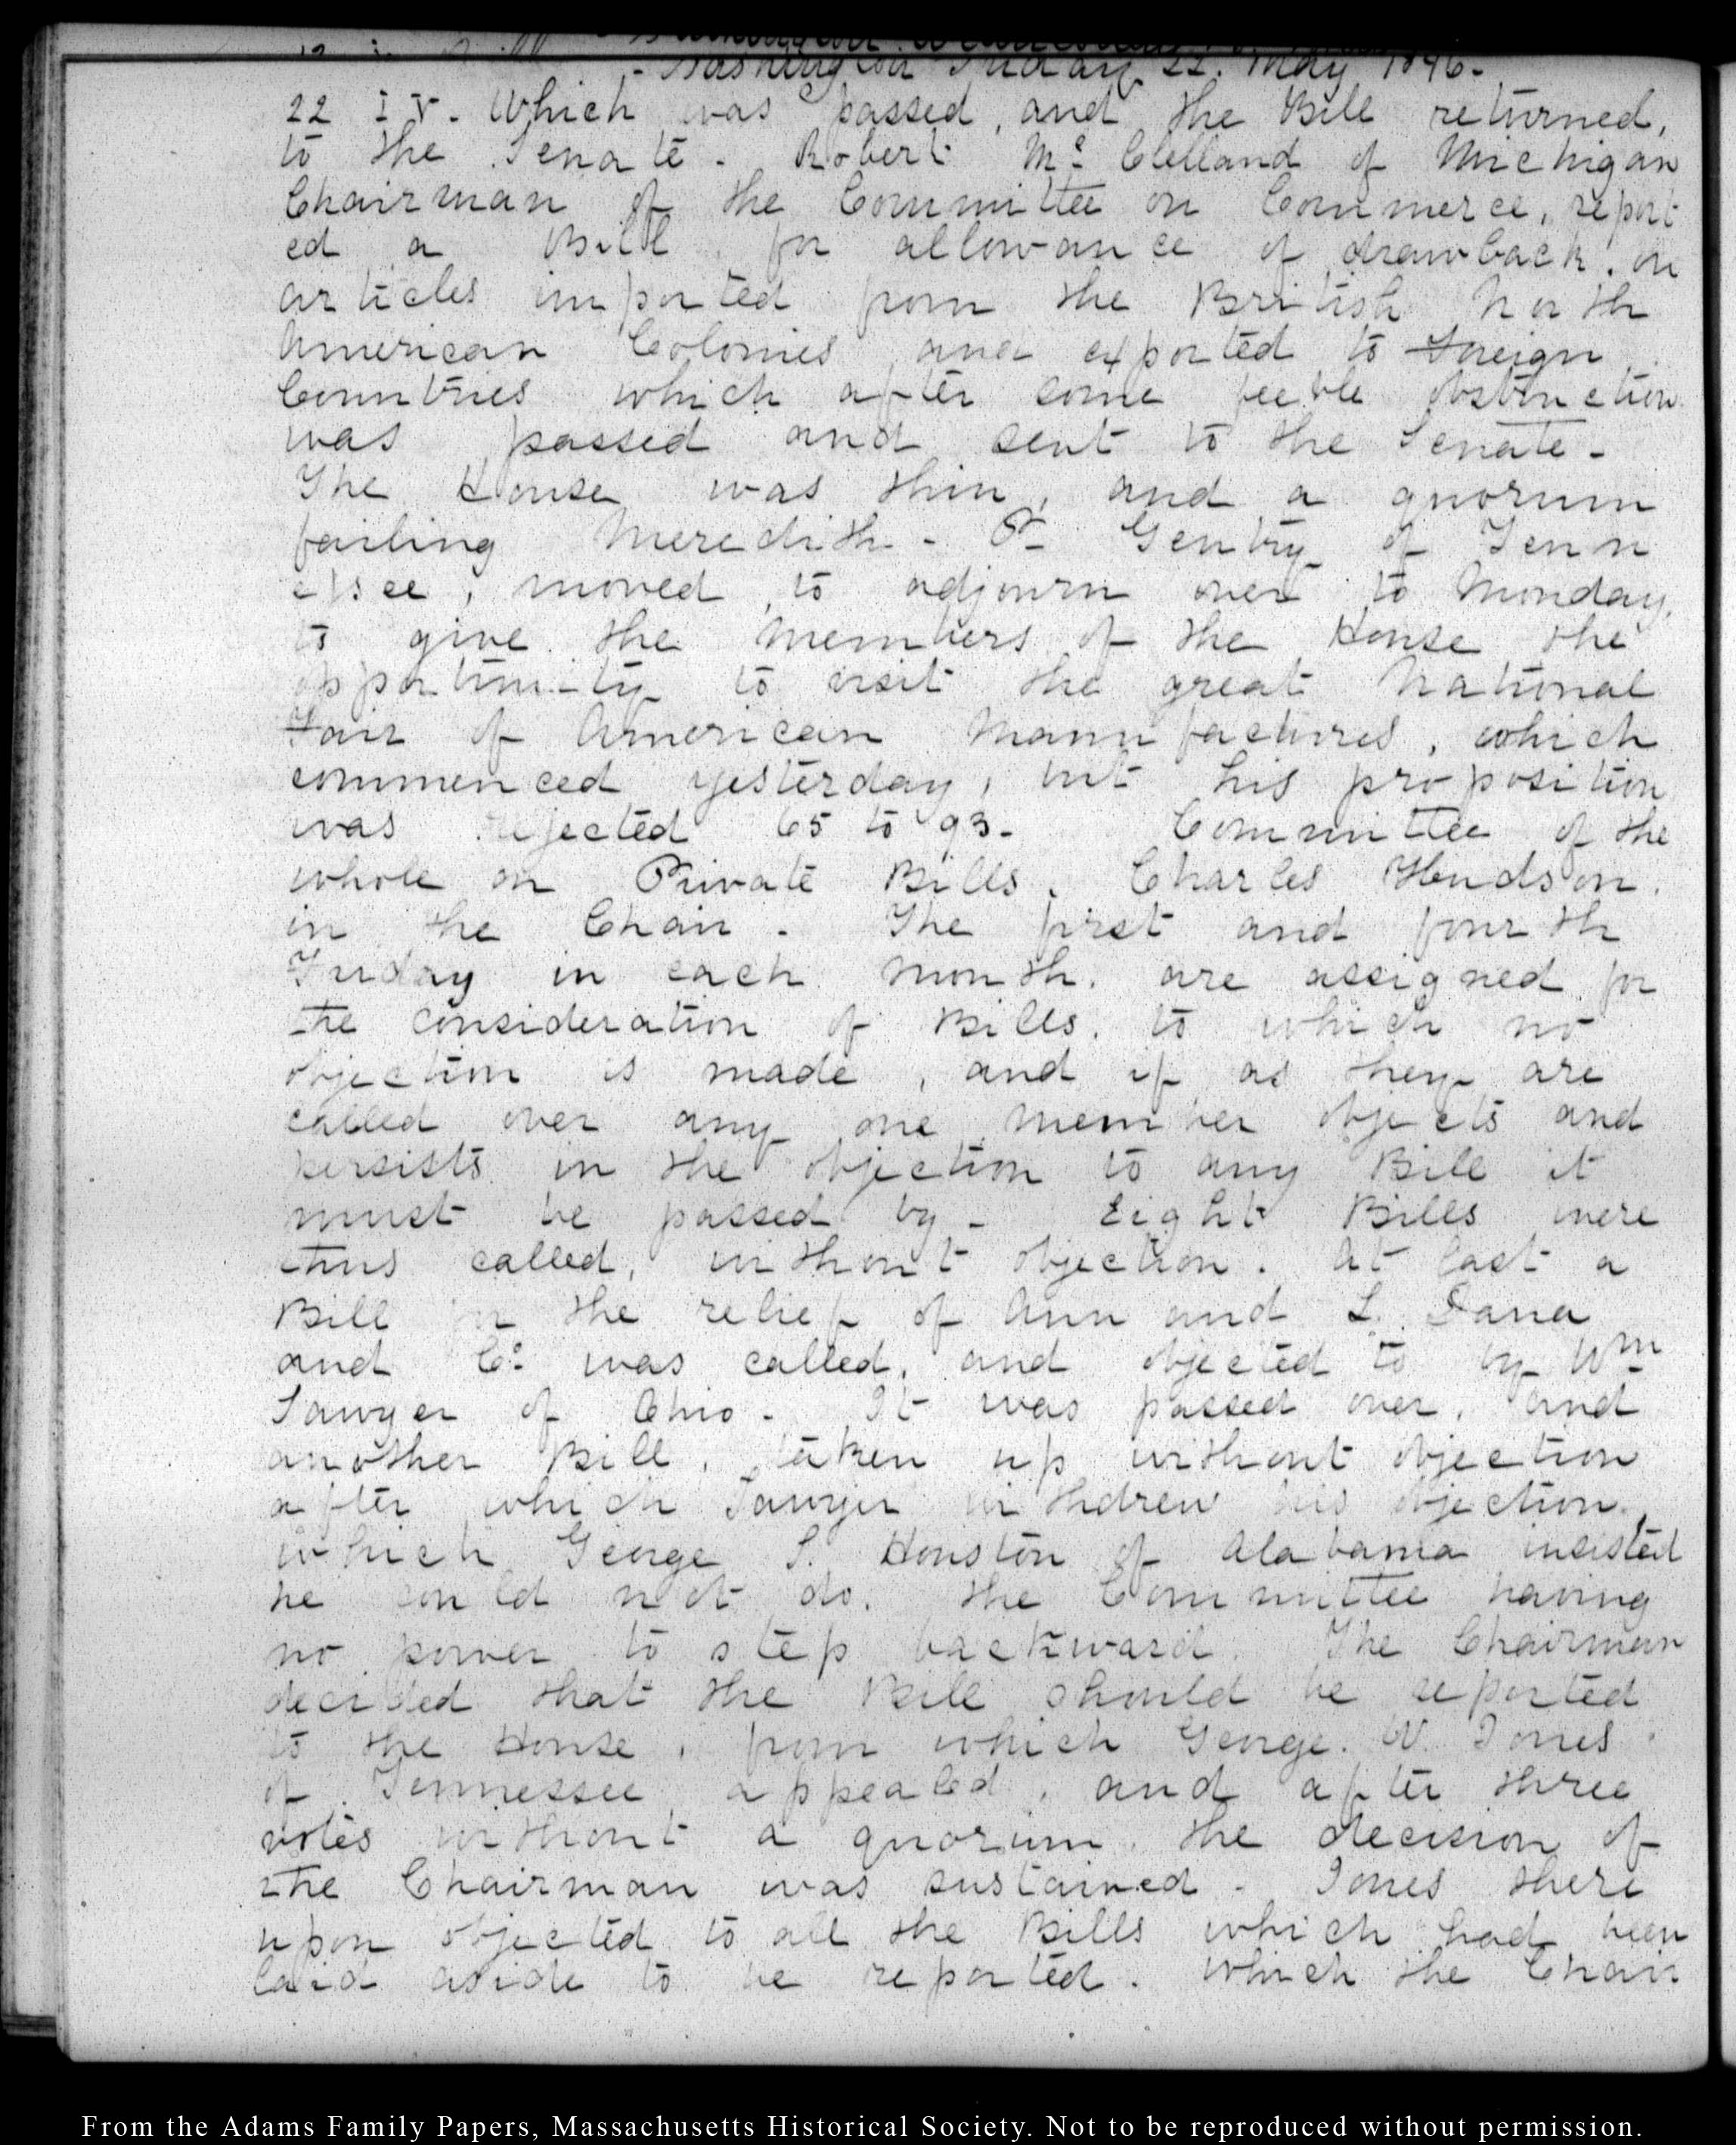 Washington Friday 22. May 1846.
22 IV. Which was passed, and the Bill returned,
to the Senate - Robert Mc Clelland of Michigan
Chairman of the Committee on Commerce, report
ed a Bill for allowance of drawback, on
articles imported from the British North
American Colonies and exported to Foreign
Countries which after some feeble obstruction
was passed and sent to the Senate -
The House was thin, and a quorum
failing Meredith - P. Gentry of Tenn
essee, moved, to adjourn over to Monday,
to give the members of the House the
opportunity to visit the great National
Fair of American Manufactures, which
commenced yesterday, but his proposition
was rejected 65 to 93 - Committee of the
whole on Private Bills. Charles Hudson.
in the Chair - The first and fourth
Friday in each month. are assigned for
the consideration of Bills. to which no
objection is made, and if as they are
called over any one member objects and
persists in the objection to any Bill it
must be passed by - Eight Bills were
thus called, without objection. At last a
Bill for the relief of Ann and L. Dana
and Co. was called, and objected to by Wm
Sawyer of Ohio - It was passed over, and
another Bill, taken up without objection
after which Sawyer withdrew his objection,
which George S. Houston of Alabama insisted
he could not do. the Committee having
no power to step backward. The Chairman
decided that the Bill should be reported
to the House, from which George. W. Jones
of Tennessee appealed, and after three
votes without a quorum the decision of
the Chairman was sustained - Jones there
upon objected to all the Bills which had been
laid aside to be reported. which the Chair
From the Adams Family Papers, Massachusetts Historical Society. Not to be reproduced without permission.